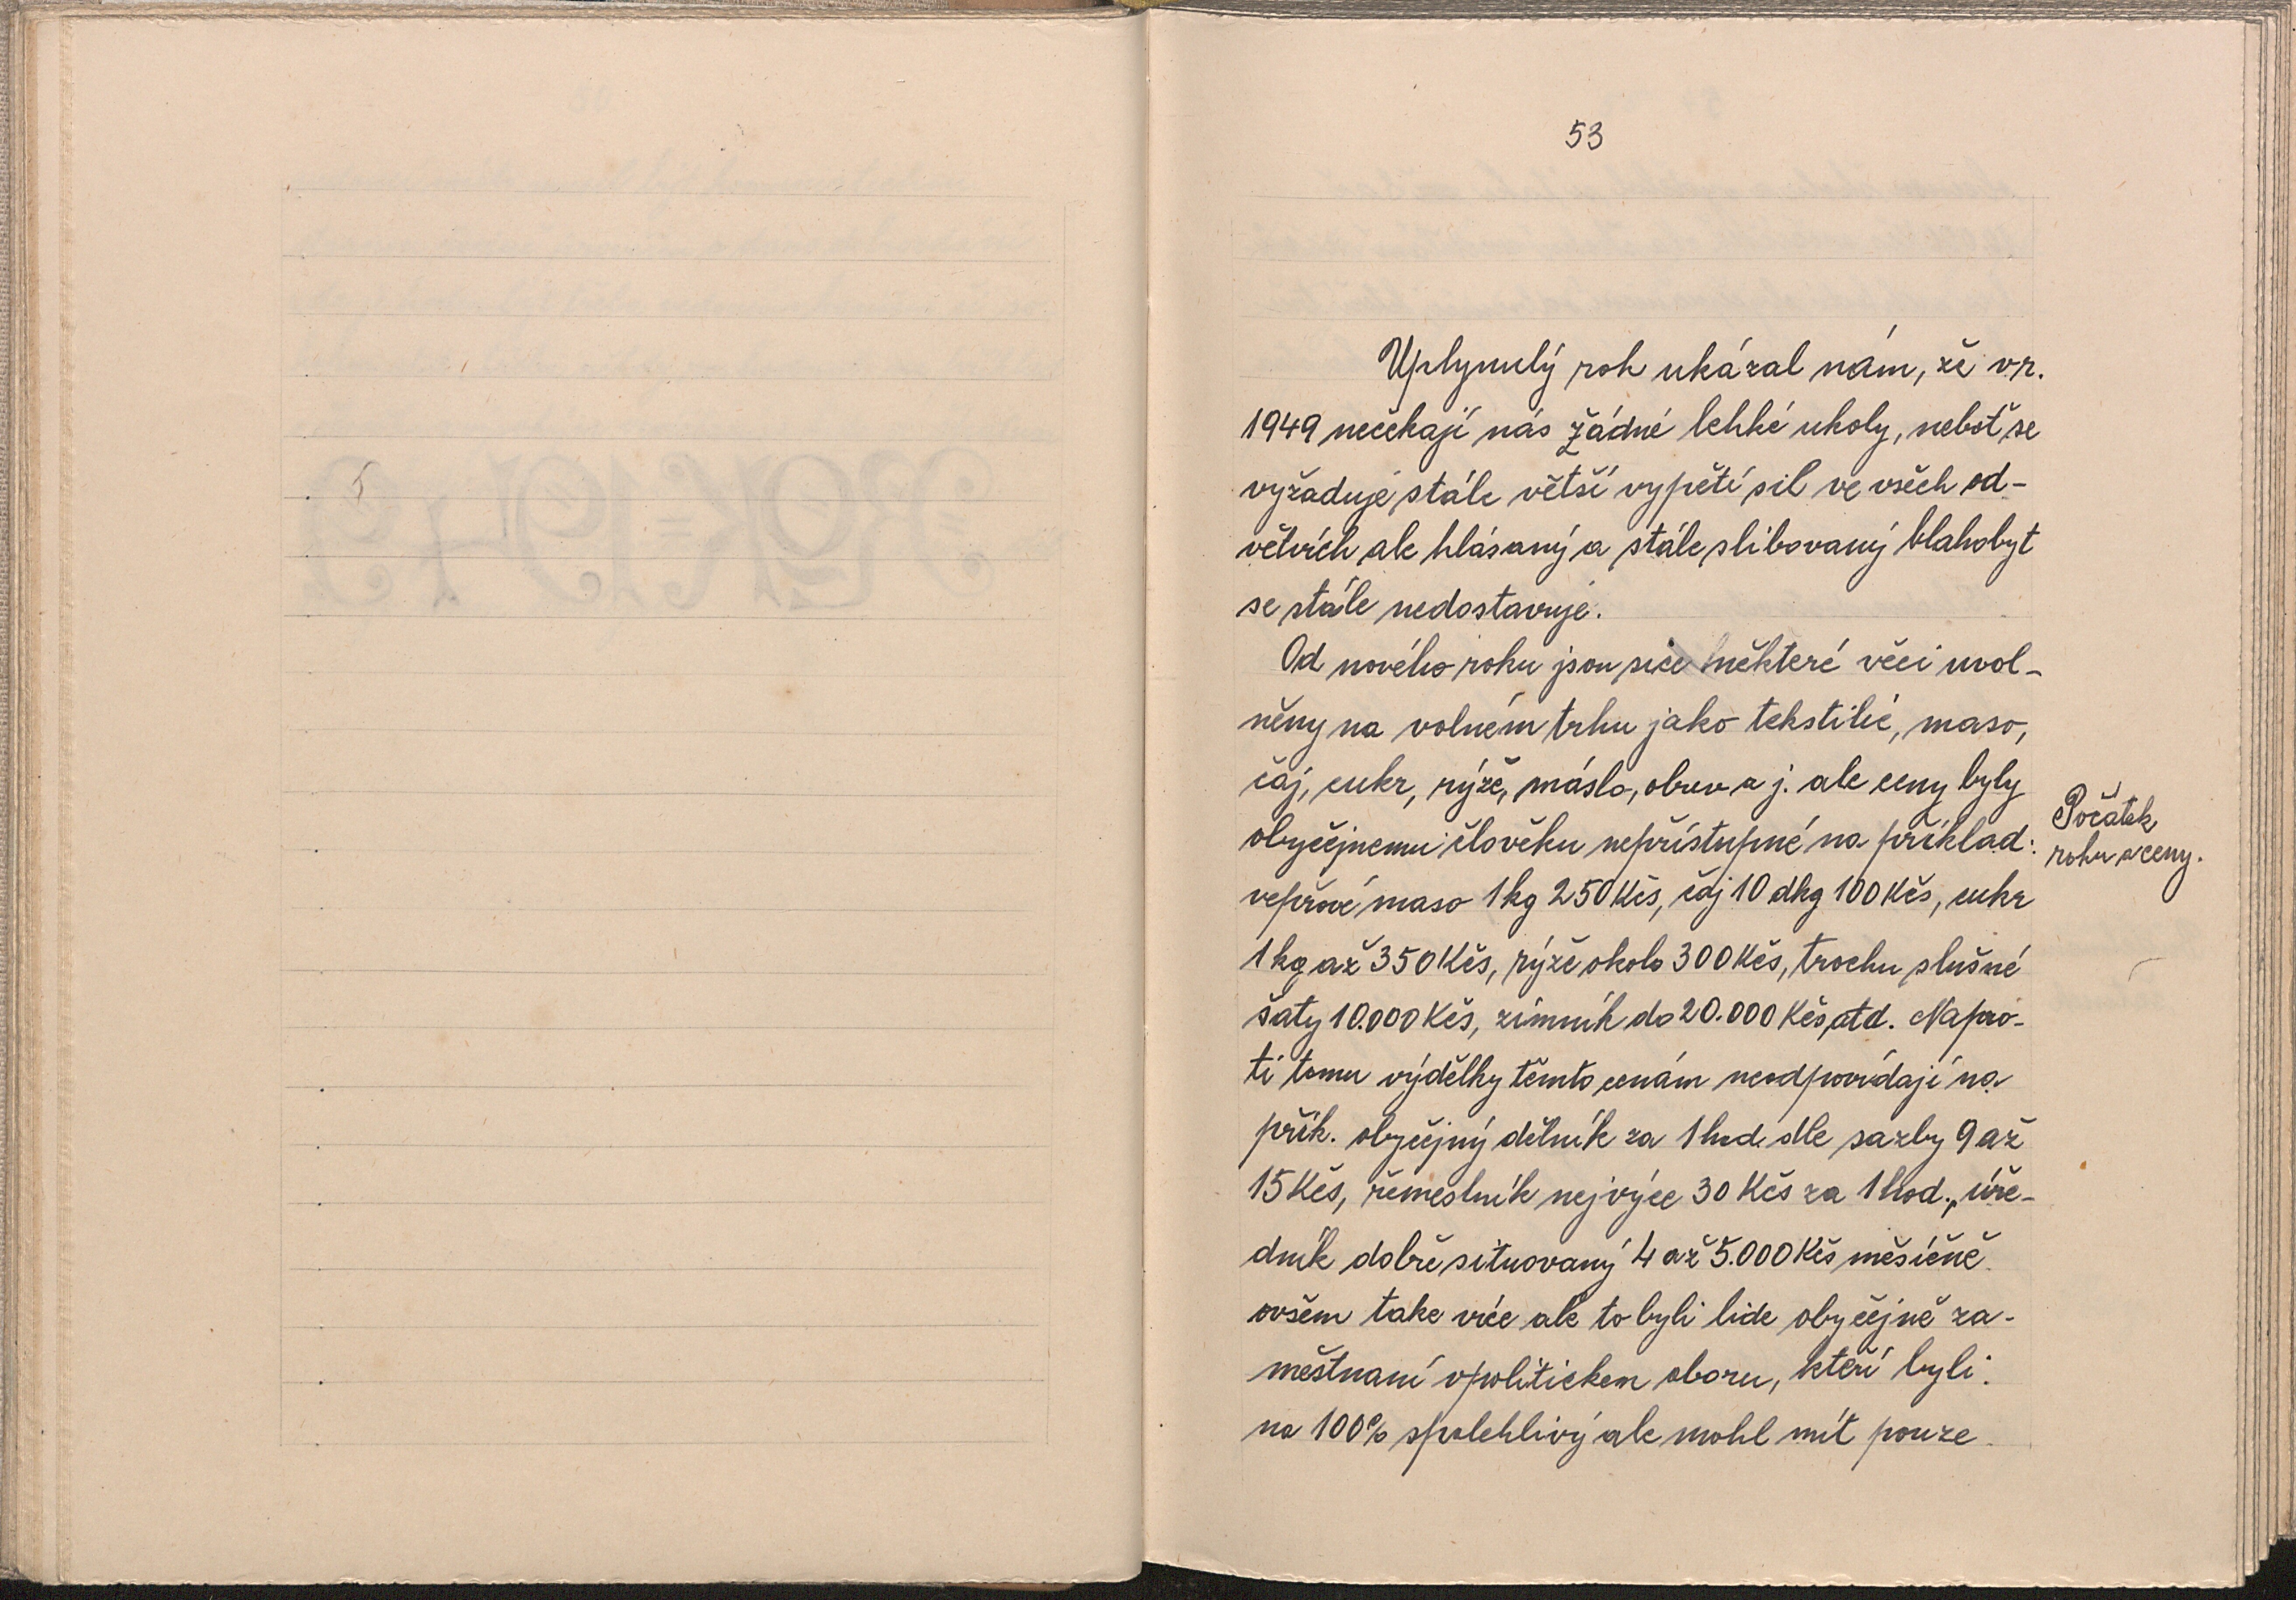 53
Uplynulý rok ukázal nám, že v r.
1949 nečekají nás žádné lehké ukoly, neboť se
vyžaduje stále větší vypětí sil ve všech od-
větvích ale hlásaný a stále slibovaný blahobyt
se stále nedostavuje.
Od nového roku jsou sice některé věci uvol-
něny na volném trhu jako tekstilie, maso,
čaj, cukr, rýže, máslo, obuv a j. ale ceny byly
obyčejnemu člověku nepřístupné na příklad:
vepřové maso 1 kg 250 Kčs, čaj 10 dkg 100 Kčs, cukr
1 kg až 350 Kčs, rýže okolo 300 Kčs, trochu slušné
šaty 10.000 Kčs, zimník do 20.000 Kčs, atd. Napro-
ti tomu výdělky těmto cenám neodpovídají na
přík. obyčejný dělník za 1 hod. dle sazby 9 až
15 Kčs, řemeslník nejvýce 30 Kčs za 1 hod., úře-
dník dobře situovaný 4 až 5.000 Kčs měsíčně
ovšem take více ale to byli lide obyčejně za-
městnaní v politickem oboru, kteří byli
na 100% spolehlivý ale mohl mít pouze
Počátek
roku a ceny.